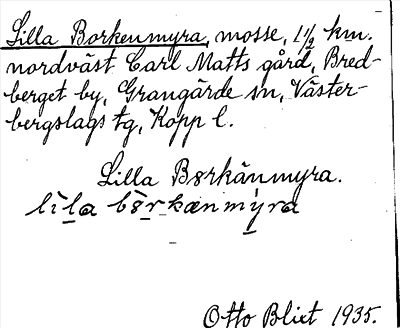 Lilla Borkenmyra, mosse, 1 1/2 km.
nordväst Carl Matts gård, Bred-
berget by, Grangärde sn, Väster-
bergslags tg, Kopp l.
Lilla Børkänmyra.
lìla bö̀rkænmýra
Otto Blixt 1935.